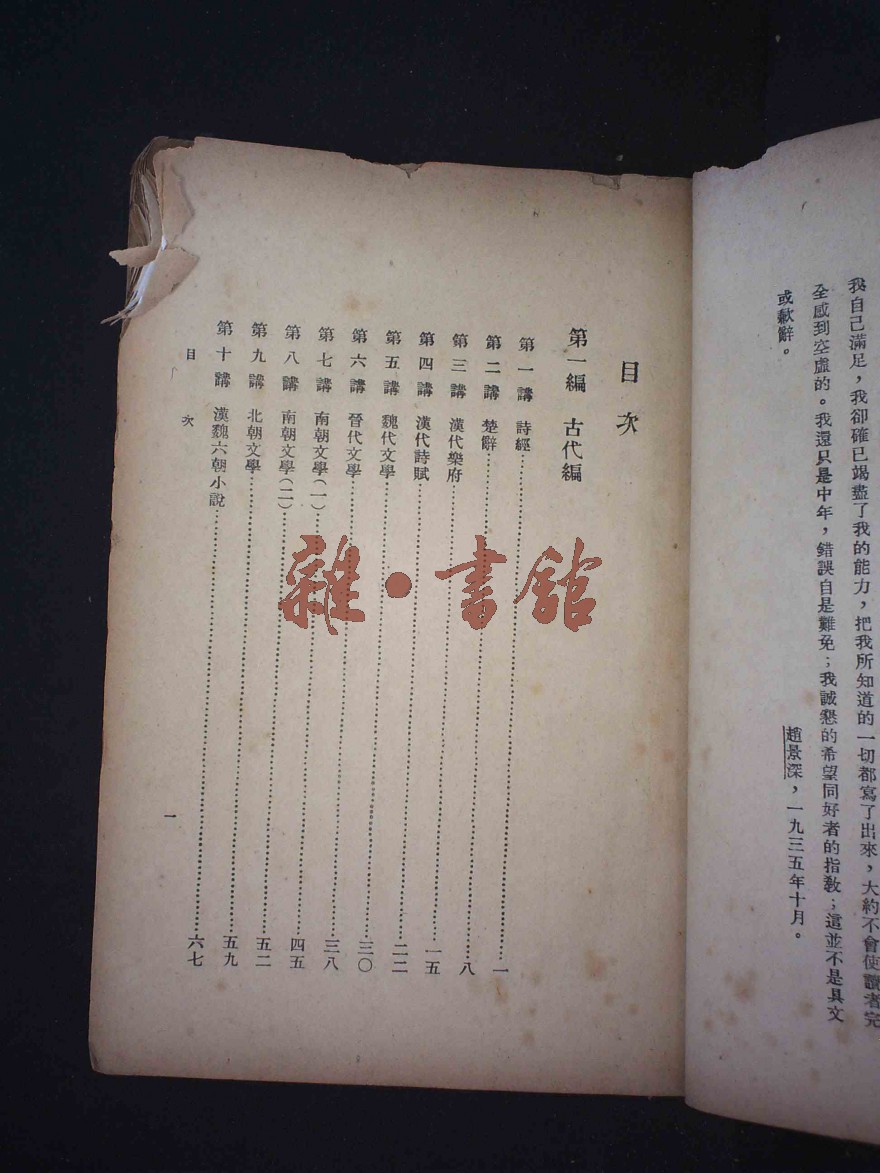 我自己滿足，我卻確已竭盡了我的能力，把我所知道的一切都寫了出來，大約不會使讀者完
全感到空虛的。我還只是中年，錯誤自是難免；我誠懇的希望同好者的指敎；這並不是具文
或歉辭。
趙景深，一九三五年十月。
目次
第一編　古代編
第一講　詩經……一
第二講　楚辭……八
第三講　漢代樂府……一五
第四講　漢代詩賦……二二
第五講　魏代文學……三〇
第六講　晉代文學……三八
第七講　南朝文學(一)……四五
第八講　南朝文學(二)……五二
第九講　北朝文學……五九
第十講　漢魏六朝小說……六七
目次
一
雜・書館